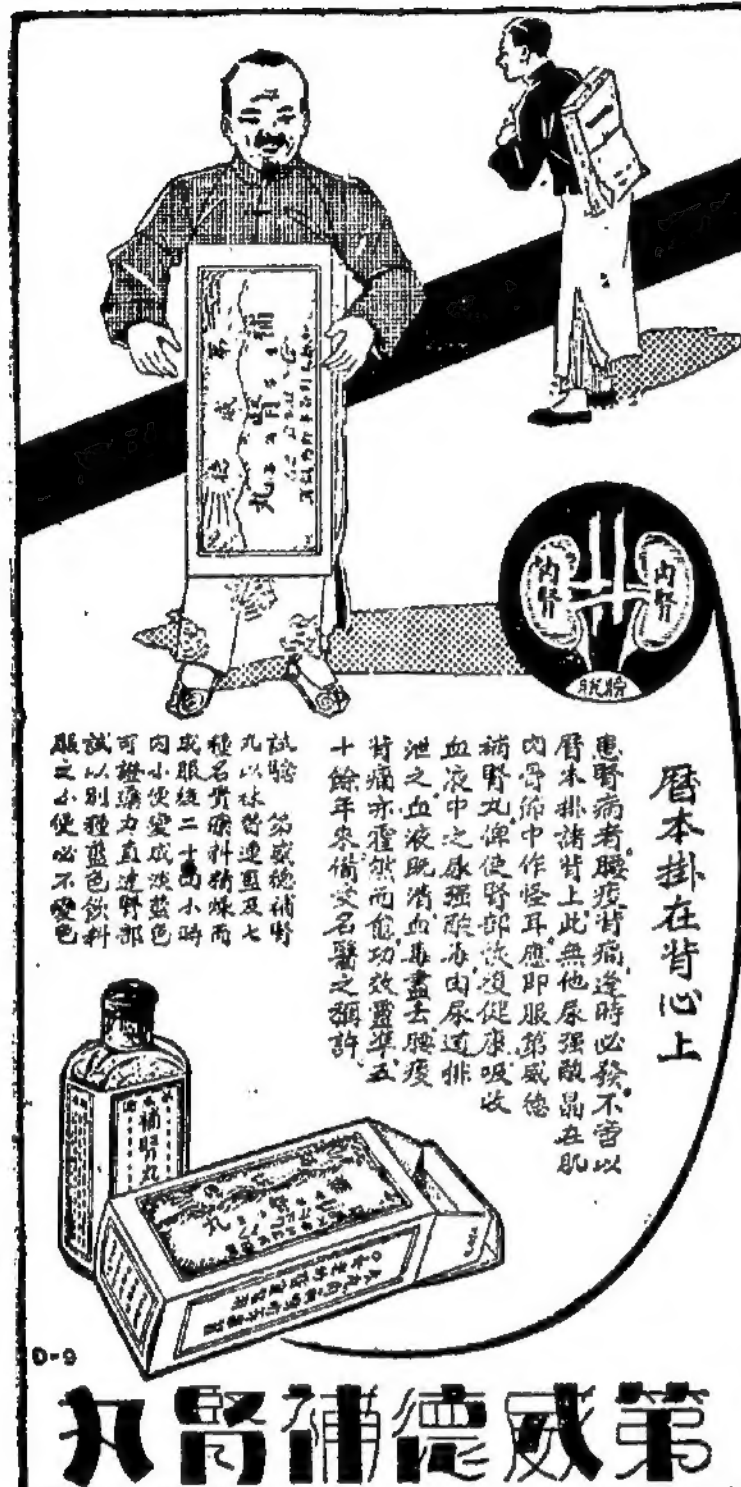 曆本掛在背心上
患腎病者腰痠背痛逢時必發不啻以
曆本掛諸背上此無他尿强酸晶在肌
肉骨節中作怪耳應即服第威德
補腎丸俾使腎部恢復健康吸收
血液中之尿强酸毒由尿道排
泄之血液既清血毒盡去腰痠
背痛亦霍然而愈功效靈準五
十餘年來備受名醫之稱許
試驗 第威德補腎
丸以林替連藍及七
種名貴藥料精煉而
成服後二十四小時
內小便變成淡藍色
可證藥力直達腎部
試以別種藍色飲料
服之小便必不變色
內腎
內腎
膀胱
第威德
補腎丸
補腎丸
丸
D-9
第威德補腎丸